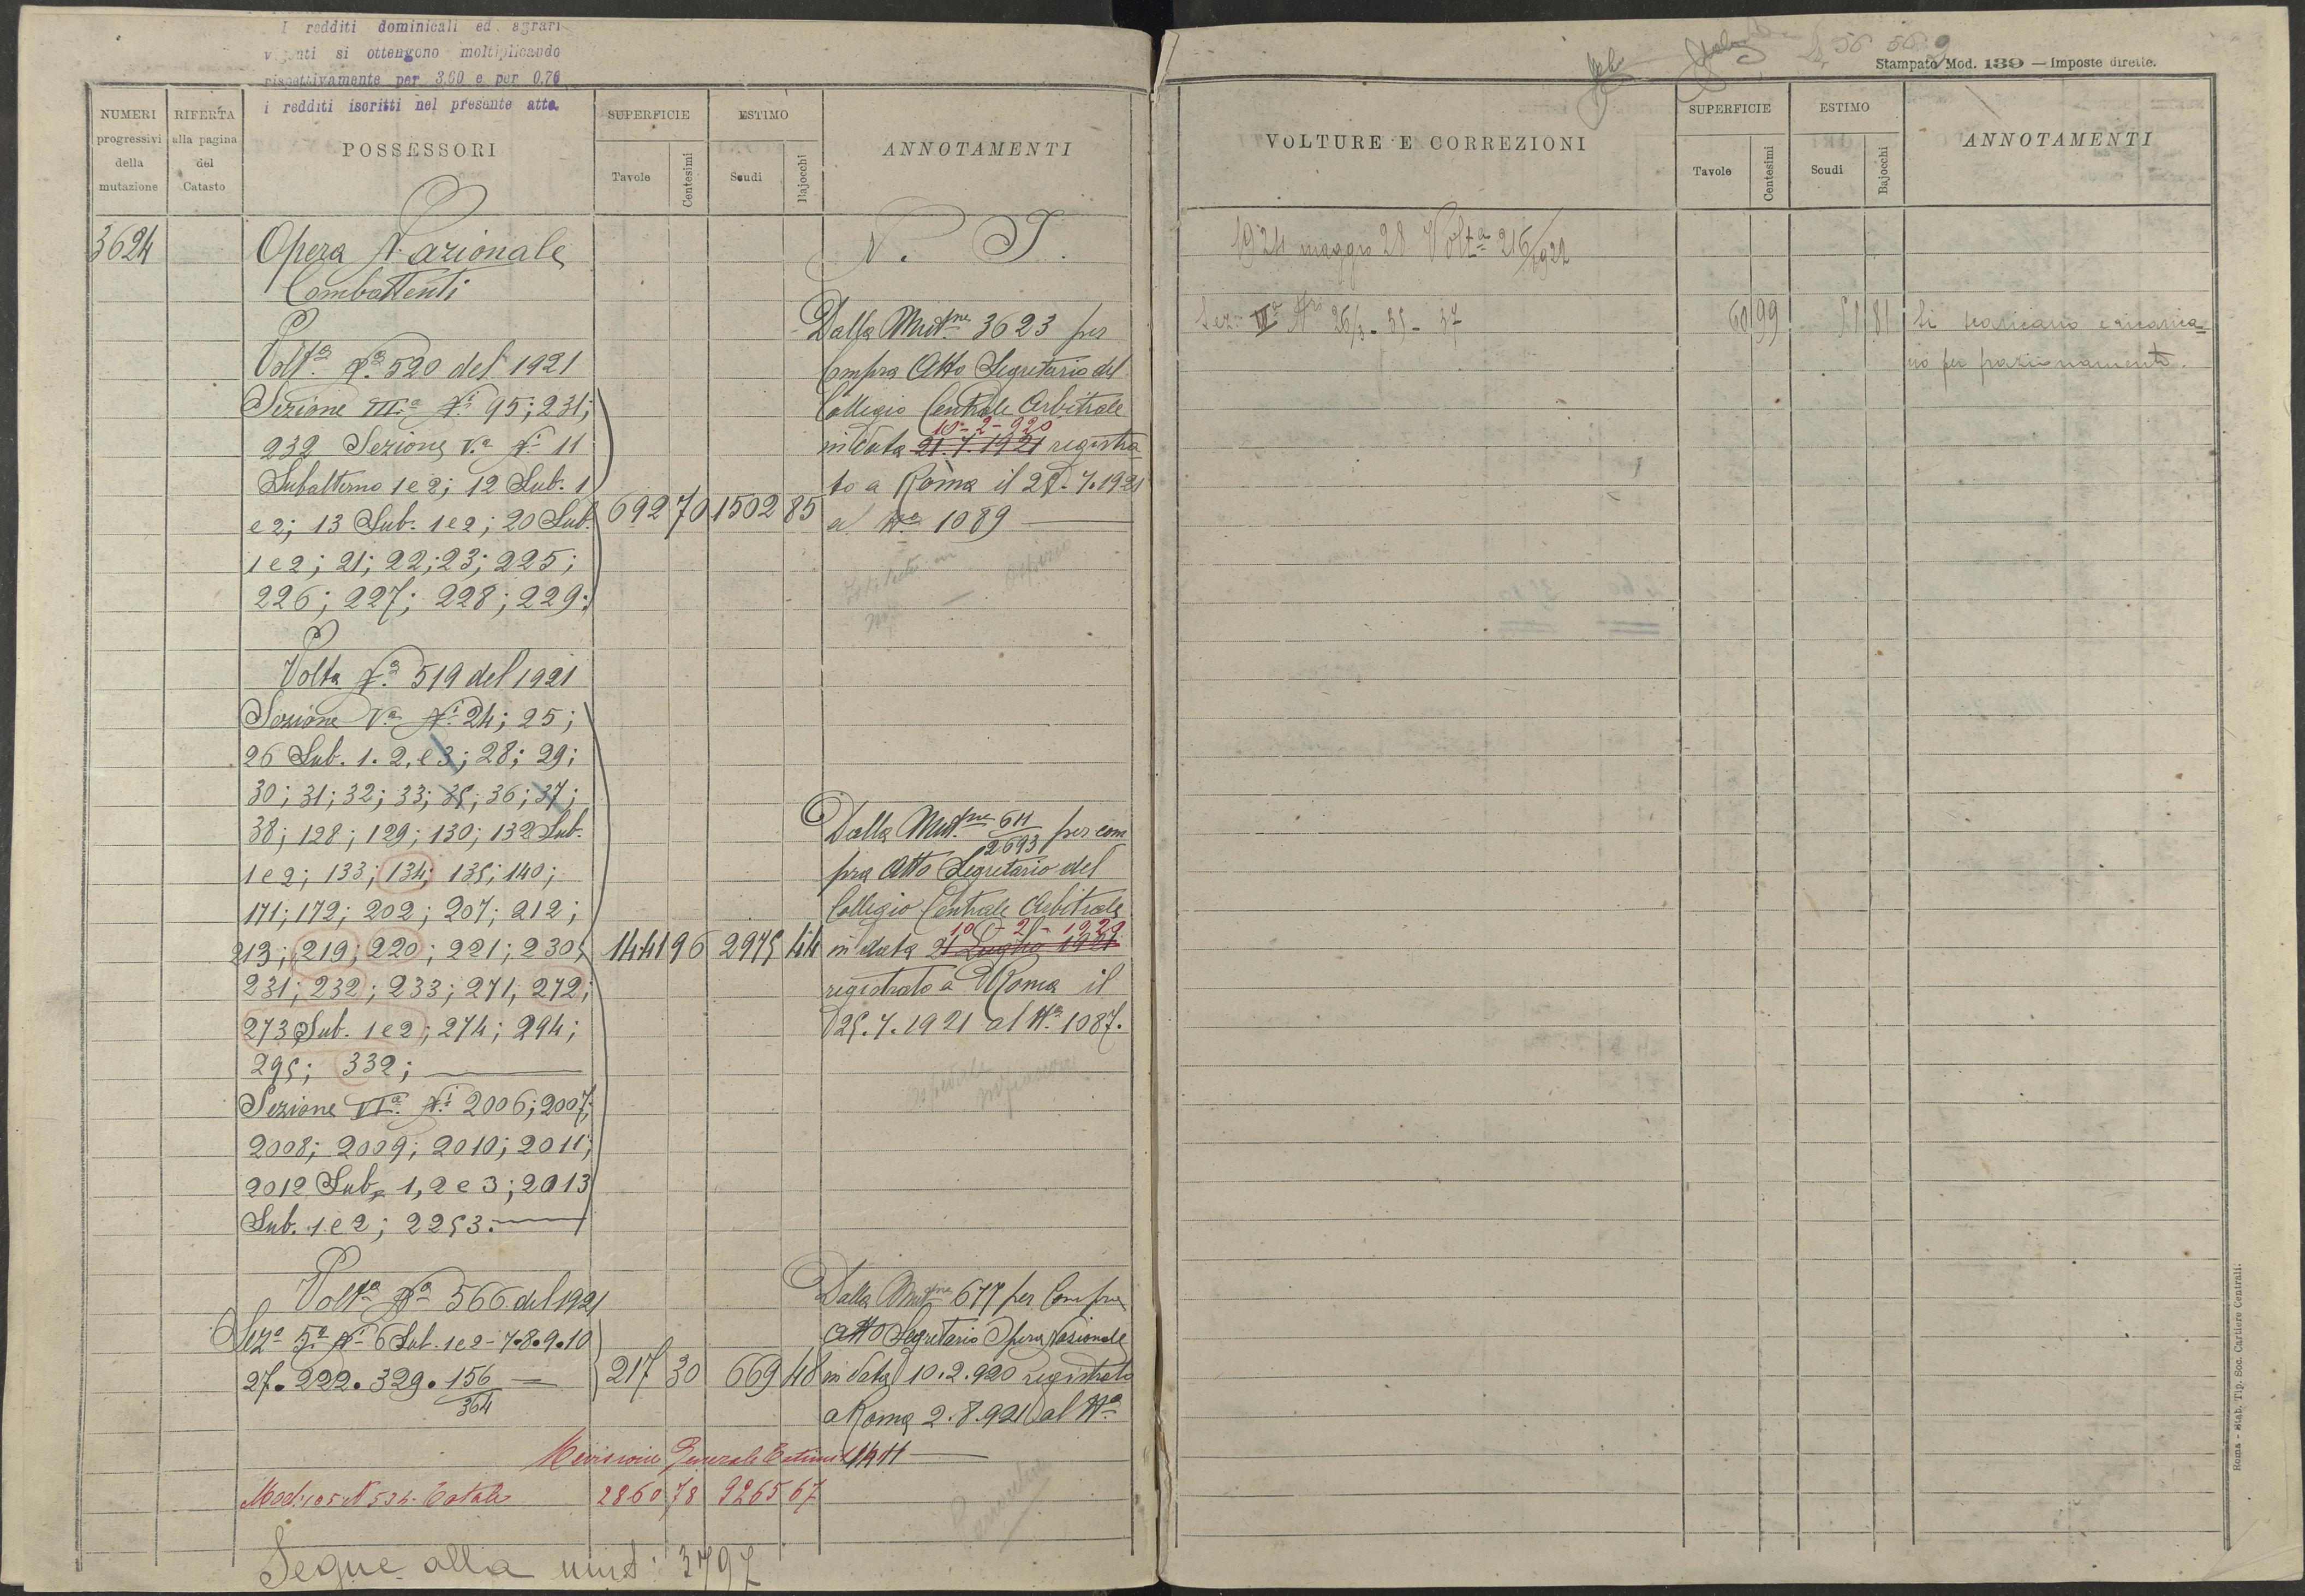 I redditi dominicali ed agrari
vigenti si ottengono moltiplicando
rispettivamente per 3,00 e per 0,76
i redditi iscritti nel presente atto
NUMERI
progressivi
della
mutazione
RIFERTA
alla pagina
del
Catasto
POSSESSORI
SUPERFICIE
Tavole
Centesimi
ESTIMO
Scudi
Bajocchi
ANNOTAMENTI
3624
Opera Nazionale
Combattenti
Volt.ª N.º 520 del 1921
Sezione III.ª N.i 95; 231;
232 Sezione V.ª N.i 11
Subalterno 1 e 2; 12 Sub. 1
e 2; 13 Sub. 1 e 2; 20 Sub.
1 e 2; 21; 22; 23; 225;
226; 227; 228; 229;
692 70 1502 85
Volta N.º 519 del 1921
Sezione V.ª N.i 24; 25;
26 Sub. 1. 2. e 3; 28; 29;
30; 31; 32; 33; 35; 36; 37;
38; 128; 129; 130; 132 Sub.
1 e 2; 133; 134; 135; 140;
171; 172; 202; 207; 212;
213; 219; 220; 221; 230;
231; 232; 233; 271; 272;
273 Sub. 1 e 2; 274; 294;
295; 332;
Sezione VI.ª N.i 2006; 2007;
2008; 2009; 2010; 2011;
2012 Sub. 1, 2 e 3; 2013
Sub. 1 e 2; 2253.
1441 96 2975 44
Volt.ª N.º 566 del 1921
Sez.ª 5.ª N.i 6 Sub. 1 e 2 - 7. 8. 9. 10
27. 222. 329. 156/364
217 30 669 48
Revisione Generale Estimi
Mod. 105 N 534. Totale 2860 78 9265 67
Segue alla mut. 3797
N. I.
Dalla Mut.ne 3623 per
Compra Atto Segretario del
Collegio Centrale Arbitrale
10 - 2 - 920
in data 21.7.1921 registra
to a Roma il 25.7.1921
al N.º 1089
Dalla Mut.ne 611/2693 per com
pra Atto Segretario del
Collegio Centrale Arbitrale
10 - 2 - 1920
in data 21 Luglio 1921
registrato a Roma il
25.7.1921 al N.º 1087.
Dalla Mut.ne 677 per Compra
Atto Segretario Opera Nazionale
in data 10.2.920 registrato
a Roma 2.8.921 al N.º
1411
Stampato Mod. 139 — Imposte dirette.
VOLTURE E CORREZIONI
SUPERFICIE
Tavole
Centesimi
ESTIMO
Scudi
Bajocchi
ANNOTAMENTI
1924 maggio 28 Volt.ª 216/922
Sez. V.ª N.ri 26/3 - 35 - 37
60 99 51 81
Si scaricano e ricarica
no per frazionamento.
Roma - Stab. Tip. Soc. Cartiere Centrali.